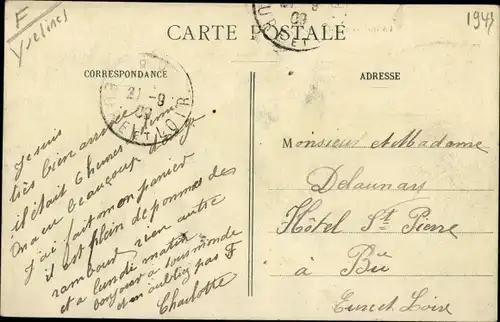 F
Yvelines
1943
CARTE POSTALE
CORRESPONDANCE
ADRESSE
21 -9
09
ET LOIR
Je suis
très bien arrivée
il était 6 heures
On a eu beaucoup
J'ai fait mon panier
il est plein de pommes de
rambour rien autre
et a lundi matin
bonjour a tous monde
et n'oubliez pas F
Charlotte
Monsieur et Madame
Delaunay
Hôtel St Pierre
à Bû
Eure et Loire